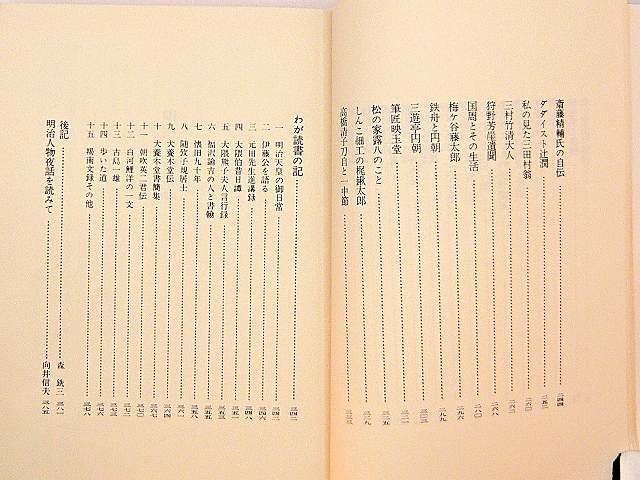 斎藤精輔氏の自伝……二四四
ダダイスト辻潤……二五二
私の見た三田村翁……二六〇
三村竹清大人……二六三
狩野芳崖遺聞……二六八
国周とその生活……二八〇
梅ケ谷藤太郎……二九六
鉄舟と円朝……二九九
三遊亭円朝……三〇三
筆匠映玉堂……三二一
松の家露八のこと……三二五
しんこ細工の梶鍬太郎……三二九
高橋清子刀自と一中節……三三三
わが読書の記……三四二
一 明治天皇の御日常……三四二
二 伊藤公を語る……三四六
三 元田先生進講録……三四八
四 大隈伯昔日譚……三五一
五 大隈熊子夫人言行録……三五三
六 福沢諭吉の人と書翰……三五五
七 懐旧九十年……三五八
八 随攷子規居士……三六一
九 犬養木堂伝……三六四
十 犬養木堂書簡集……三六七
十一 朝吹英二君伝……三七〇
十二 白河鯉洋の一文……三七一
十三 古島一雄……三七三
十四 歩いた道……三七六
十五 羯南文録その他……三七八
後記……森 銑三 三八一
明治人物夜話を読みて……向井信夫 三八五